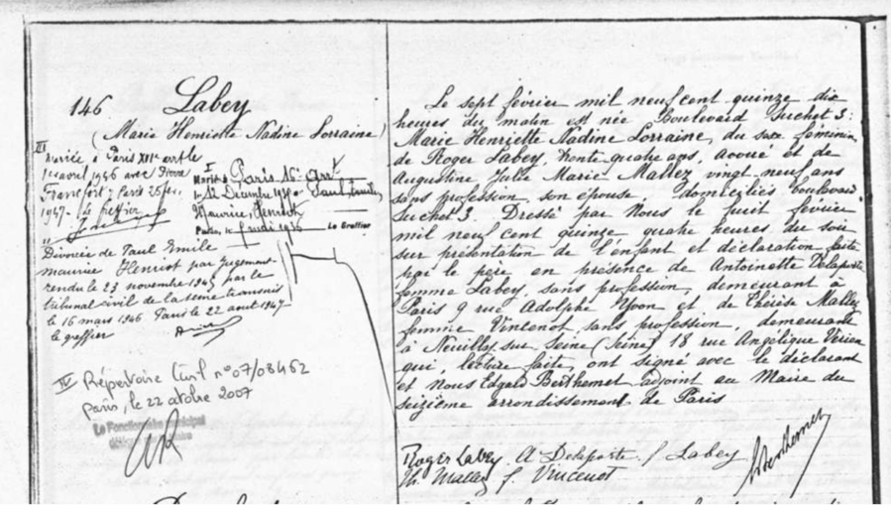 146
Labey
(Marie Henriette Nadine Lorraine)
III
Mariée à Paris XVIe arrt le
1er avril 1946 avec Pierre
Francfort Paris 25
1947. Le greffier
I
Mariée à Paris 16e arrt
le 12 Décembre Paul Emile
Maurice Henriot
Paris, le 1936 Le Greffier
II
Divorcée de Paul Emile
Maurice Henriot par jugement
rendu le 23 novembre 1945 par le
tribunal civil de la Seine transcrit
le 16 mars 1946 Paris le 22 aout 1947
le greffier
IV Répertoire Civil n° 07/08462
Paris, le 22 octobre 2007
Le Fonctionnaire municipal
Le sept février mil neuf cent quinze dix
heures du matin est née Boulevard Suchet 3:
Marie Henriette Nadine Lorraine, du sexe féminin
de Roger Labey, trente quatre ans, avoué et de
Augustine Julie Marie Mallez vingt neuf ans
sans profession, son épouse, domiciliés boulevard
Suchet 3. Dressé par Nous le huit février
mil neuf cent quinze quatre heures du soir
sur présentation de l'enfant et déclaration faite
par le père en présence de Antoinette Delaporte
femme Labey, sans profession, demeurant à
Paris 9 rue Adolphe Yvon et de Thérèse Mallez
femme Vincenot, sans profession, demeurant
à Neuilly sur Seine (Seine) 18 rue Angélique Vérien
qui, lecture faite, ont signé avec le déclarant
et Nous Edgard Berthemet adjoint au Maire du
seizième arrondissement de Paris
Roger Labey A Delaporte f Labey
Th. Mallez f. Vincenot
Berthemet